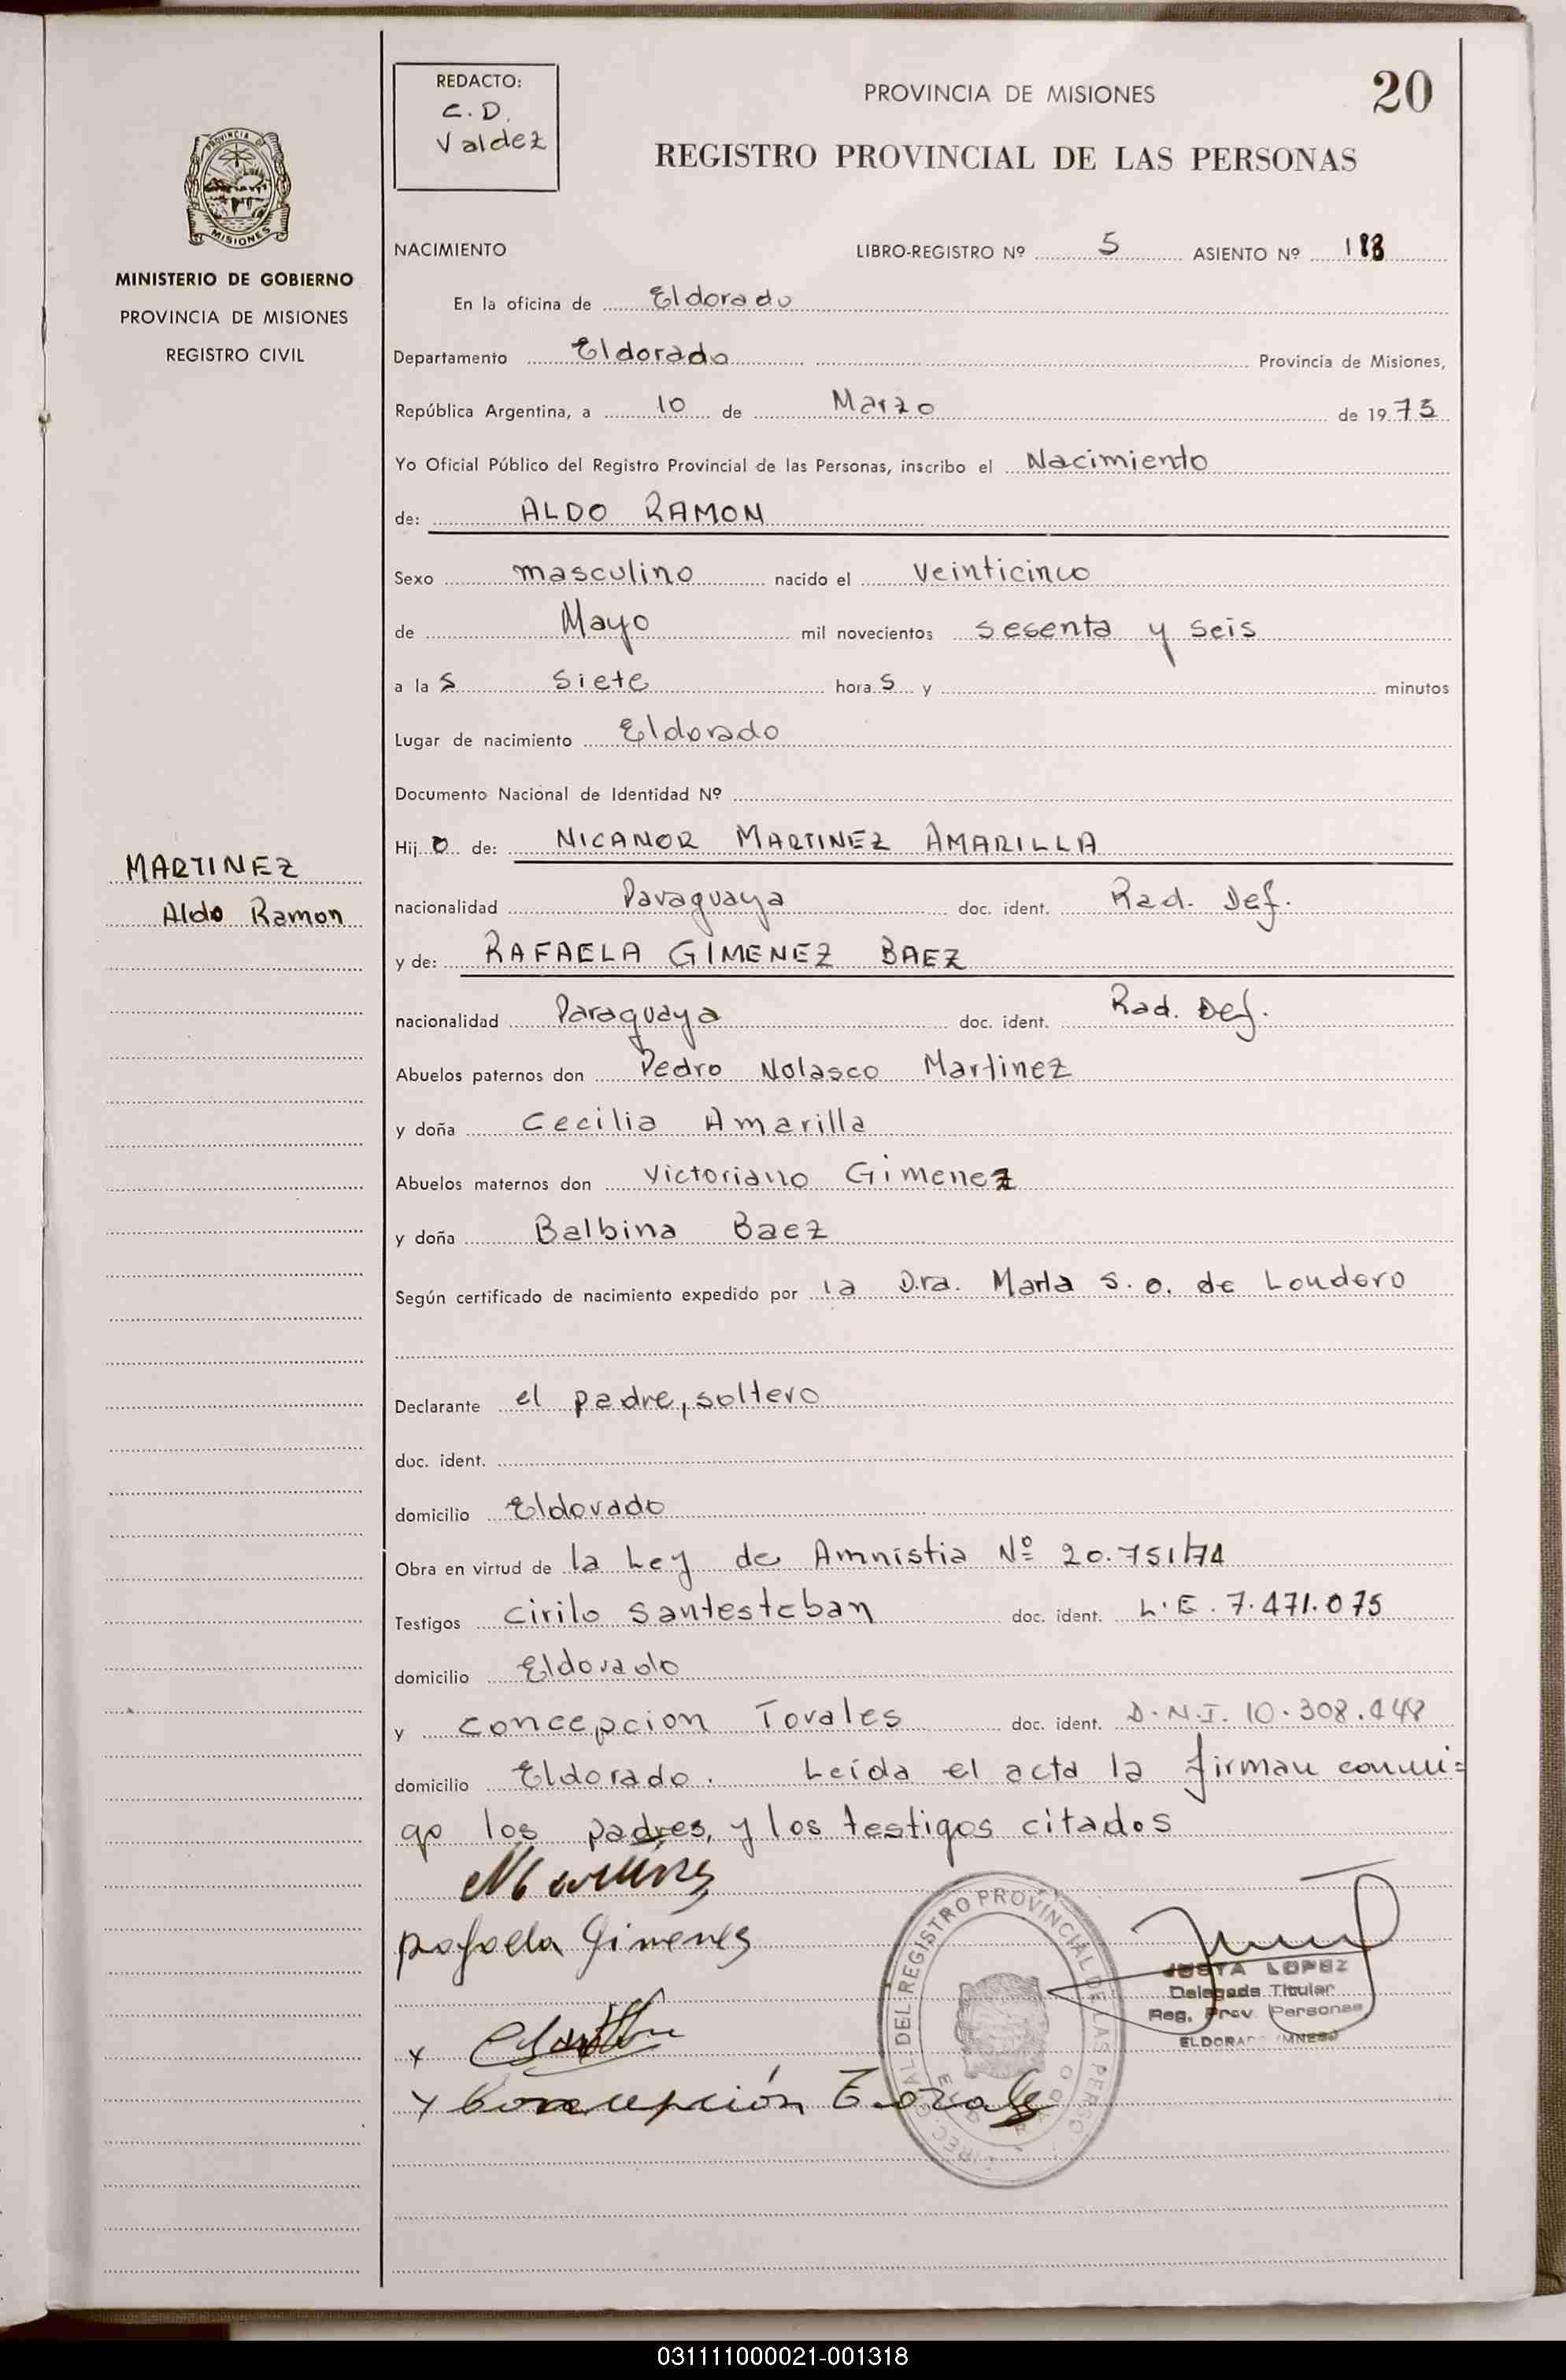 REDACTO:
C. D.
Valdez
PROVINCIA DE MISIONES
20
REGISTRO PROVINCIAL DE LAS PERSONAS
PROVINCIA DE
MISIONES
MINISTERIO DE GOBIERNO
PROVINCIA DE MISIONES
REGISTRO CIVIL
NACIMIENTO LIBRO-REGISTRO Nº 5 ASIENTO Nº 188
En la oficina de Eldorado
Departamento Eldorado Provincia de Misiones,
República Argentina, a 10 de Marzo de 1975
Yo Oficial Público del Registro Provincial de las Personas, inscribo el Nacimiento
de: ALDO RAMON
Sexo masculino nacido el veinticinco
de Mayo mil novecientos sesenta y seis
a las siete horas y minutos
Lugar de nacimiento Eldorado
Documento Nacional de Identidad Nº
Hijo de: NICANOR MARTINEZ AMARILLA
MARTINEZ
Aldo Ramon
nacionalidad Paraguaya doc. ident. Rad. Def.
y de: RAFAELA GIMENEZ BAEZ
nacionalidad Paraguaya doc. ident. Rad. Def.
Abuelos paternos don Pedro Nolasco Martinez
y doña Cecilia Amarilla
Abuelos maternos don Victoriano Gimenez
y doña Balbina Baez
Según certificado de nacimiento expedido por la Dra. Marta S. O. de Londero
Declarante el padre, soltero
doc. ident.
domicilio Eldorado
Obra en virtud de la Ley de Amnistia Nº 20.751/74
Testigos Cirilo Santesteban doc. ident. L.E. 7.471.075
domicilio Eldorado
y Concepcion Torales doc. ident. D.N.I. 10.308.448
domicilio Eldorado. Leída el acta la firman conmi=
go los padres, y los testigos citados
Rafaela Gimenes
x
x Concepción Torales
DEL REGISTRO PROVINCIAL DE LAS PERSO
JUSTA LOPEZ
Delegada Titular
Reg. Prov. Personas
ELDORADO (MNES)
031111000021-001318